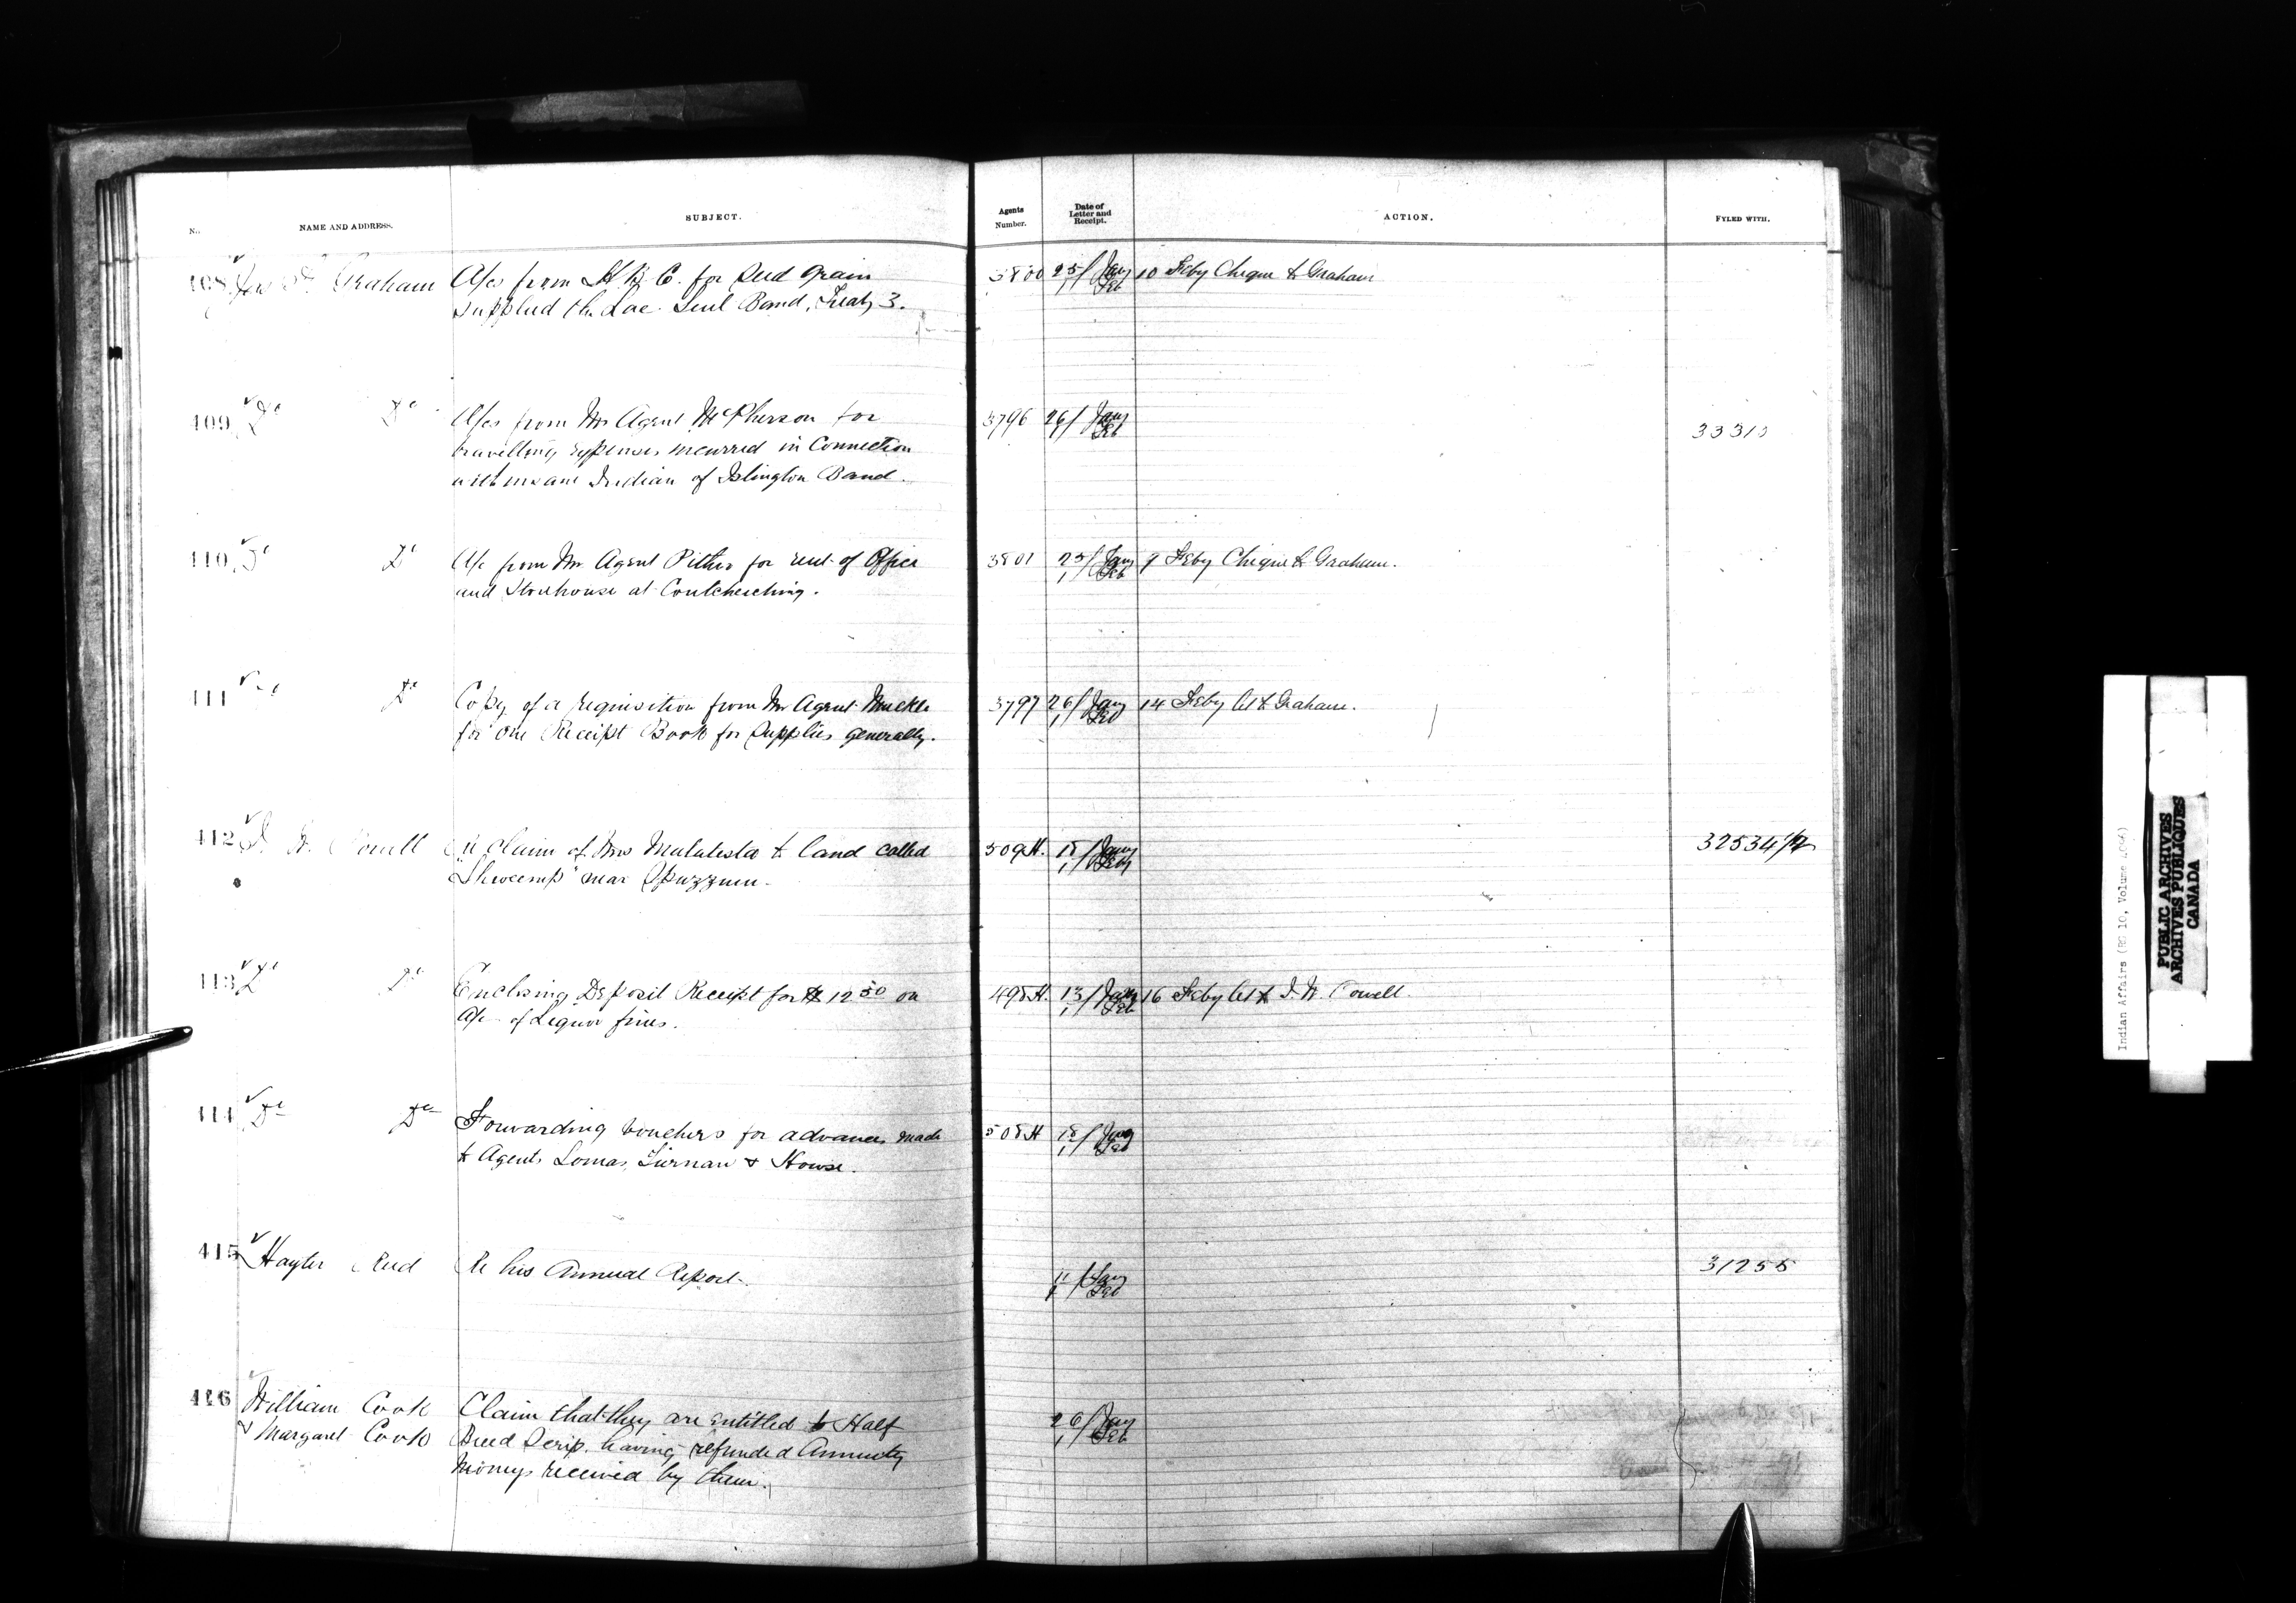 No. NAME AND ADDRESS. SUBJECT. Agents Number. Date of Letter and Receipt. ACTION. FYLED WITH.
408 Jas F. Graham A/cs from H.B.C. for Seed Grain 3800 25/1 Jany Feb 10 Feby Cheque to Graham
supplied the Lac Seul Band, Treaty 3.
409 Do Do A/cs from Mr Agent McPherson for 3796 26/1 Jany Feb 33310
travelling expenses incurred in Connection
with insane Indian of Islington Band.
410 Do Do A/c from Mr Agent Pither for rent of Office 3801 25/1 Jany Feb 9 Feby Cheque to Graham.
and Storehouse at Coutcheching.
411 Do Do Copy of a requisition from Mr Agent Muckle 3797 26/1 Jany Feb 14 Feby let to Graham.
for one Receipt Book for Supplies generally.
412 I. W. Powell Re claim of Mrs Malatesta to land called 509H. 18/1 Jany Feby 32534/
" near Spuzzum.
413 Do Do Enclosing Deposit Receipt for $12.50 on 498H. 13/1 Jany Feb 16 Feby let to I. W. Powell.
A/c of Liquor fines.
414 Do Do Forwarding vouchers for advances made 508H 18/1 Jany Feb
to Agents Lomas, & Howse.
415 Hayter Reed Re his Annual Report. 11/1 Jany Feb 31255
416 William Cook Claim that they are entitled to Half 26/1 Jany Feb
& Margaret Cook Breed Scrip, having refunded Annuity
moneys received by them.
Indian Affairs (RG 10, Volume
PUBLIC ARCHIVES
ARCHIVES PUBLIQUES
CANADA